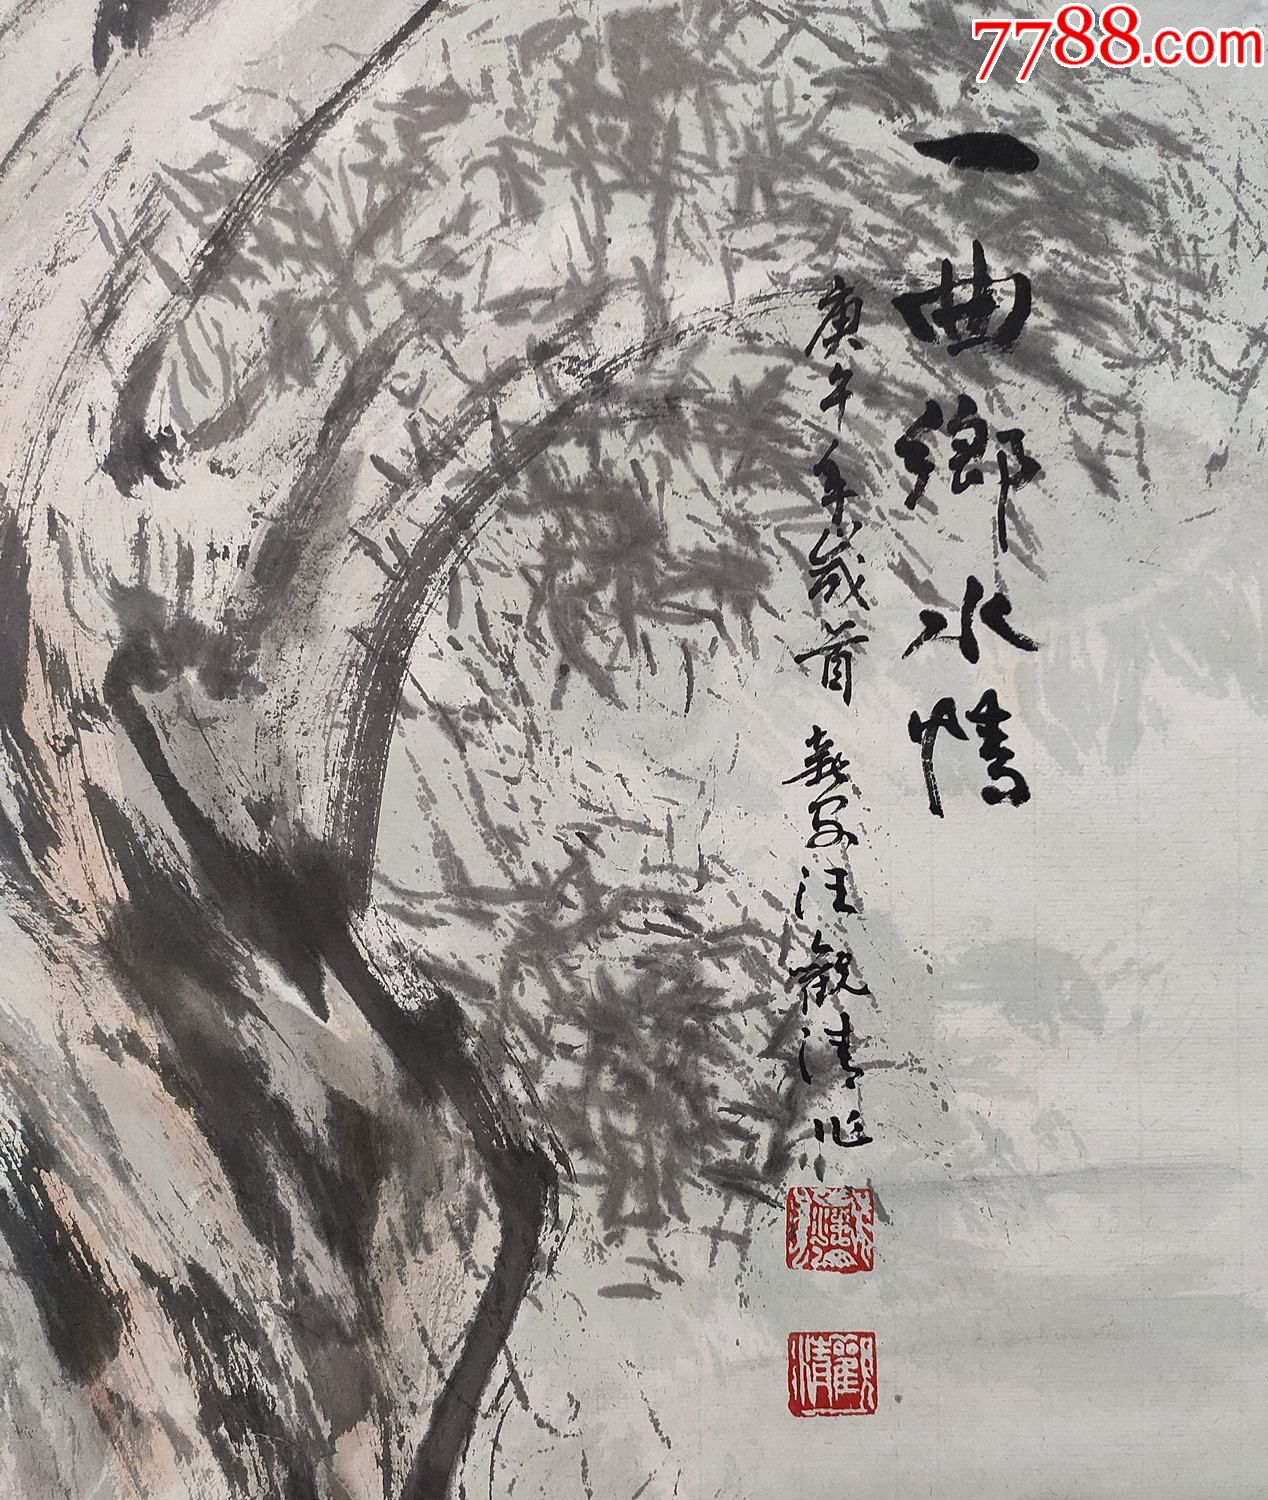 7788.com
一曲鄉水情
庚午年歲首新安汪觀清作
觀清